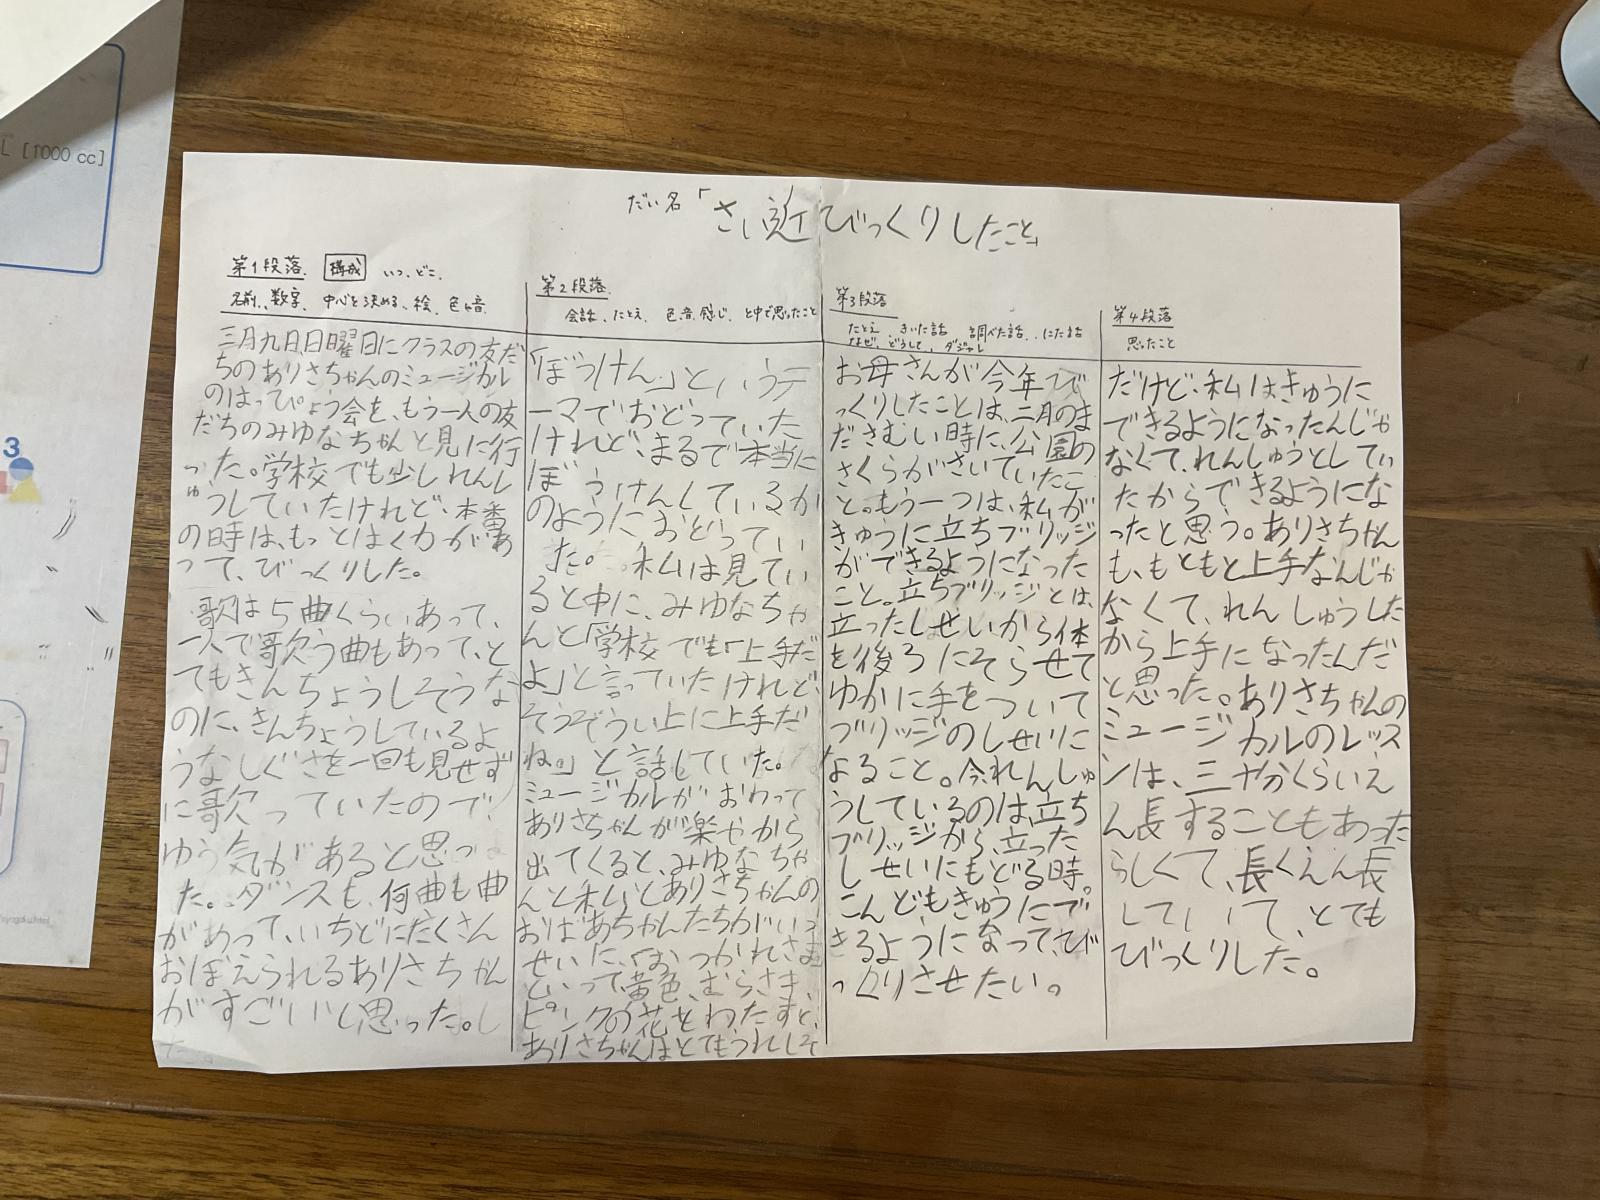 [1000 cc]
3
だい名「さい近びっくりしたこと」
第1段落. 構成 いつ、どこ.
名前、数字、中心を決める、絵、色や音
三月九日、日曜日にクラスの友だ
ちのありさちゃんのミュージカル
のはっぴょう会を、もう一人の友
だちのみゆなちゃんと見に行
った。学校でも少しれんし
ゅうしていたけれど、本番
の時は、もっとはく力があ
って、びっくりした。
歌は5曲くらいあって、
一人で歌う曲もあって、と
てもきんちょうしそうな
のに、きんちょうしているよ
うなしぐさを一回も見せず
に歌っていたので、
ゆう気があると思っ
た。ダンスも、何曲も曲
があって、いちどにたくさん
おぼえられるありさちゃん
がすごいと思った。
第2段落.
会話、たとえ、色、音、感じ、と中で思ったこと
「ぼうけん」というテ
ーマでおどっていた
けれど、まるで本当に
ぼうけんしているか
のようにおどってい
た。私は見てい
ると中に、みゆなちゃ
んと「学校でも「上手だ
よ」と言っていたけれど、
そうぞうい上に上手だ
ね。」と話していた。
ミュージカルがおわって
ありさちゃんが楽やから
出てくると、みゆなちゃ
んと私とありさちゃんの
おばあちゃんたちがいっ
せいに、「おつかれさま」
といって、黄色、むらさき、
ピンクの花をわたすと、
ありさちゃんはとてもうれしそ
第3段落
たとえ きいた話 調べた話、にた話
なぜ、どうして、ダジャレ
お母さんが今年び
っくりしたことは、二月のま
ださむい時に、公園の
さくらがさいていたこ
と。もう一つは、私が
きゅうに立ちブリッジ
ができるようになった
こと。立ちブリッジとは、
立ったしせいから体
を後ろにそらせて
ゆかに手をついて
ブリッジのしせいに
なること。今れんしゅ
うしているのは、立ち
ブリッジから、立った
しせいにもどる時。
こんどもきゅうにで
きるようになって、び
っくりさせたい。
第4段落
思ったこと
だけど、私はきゅうに
できるようになったんじゃ
なくて、れんしゅうとしてい
たからできるようにな
ったと思う。ありさちゃん
も、もともと上手なんじゃ
なくて、れんしゅうした
から上手になったんだ
と思った。ありさちゃんの
ミュージカルのレッス
ンは、三十分くらいえ
ん長することもあった
らしくて、長くえん長
していて、とても
びっくりした。